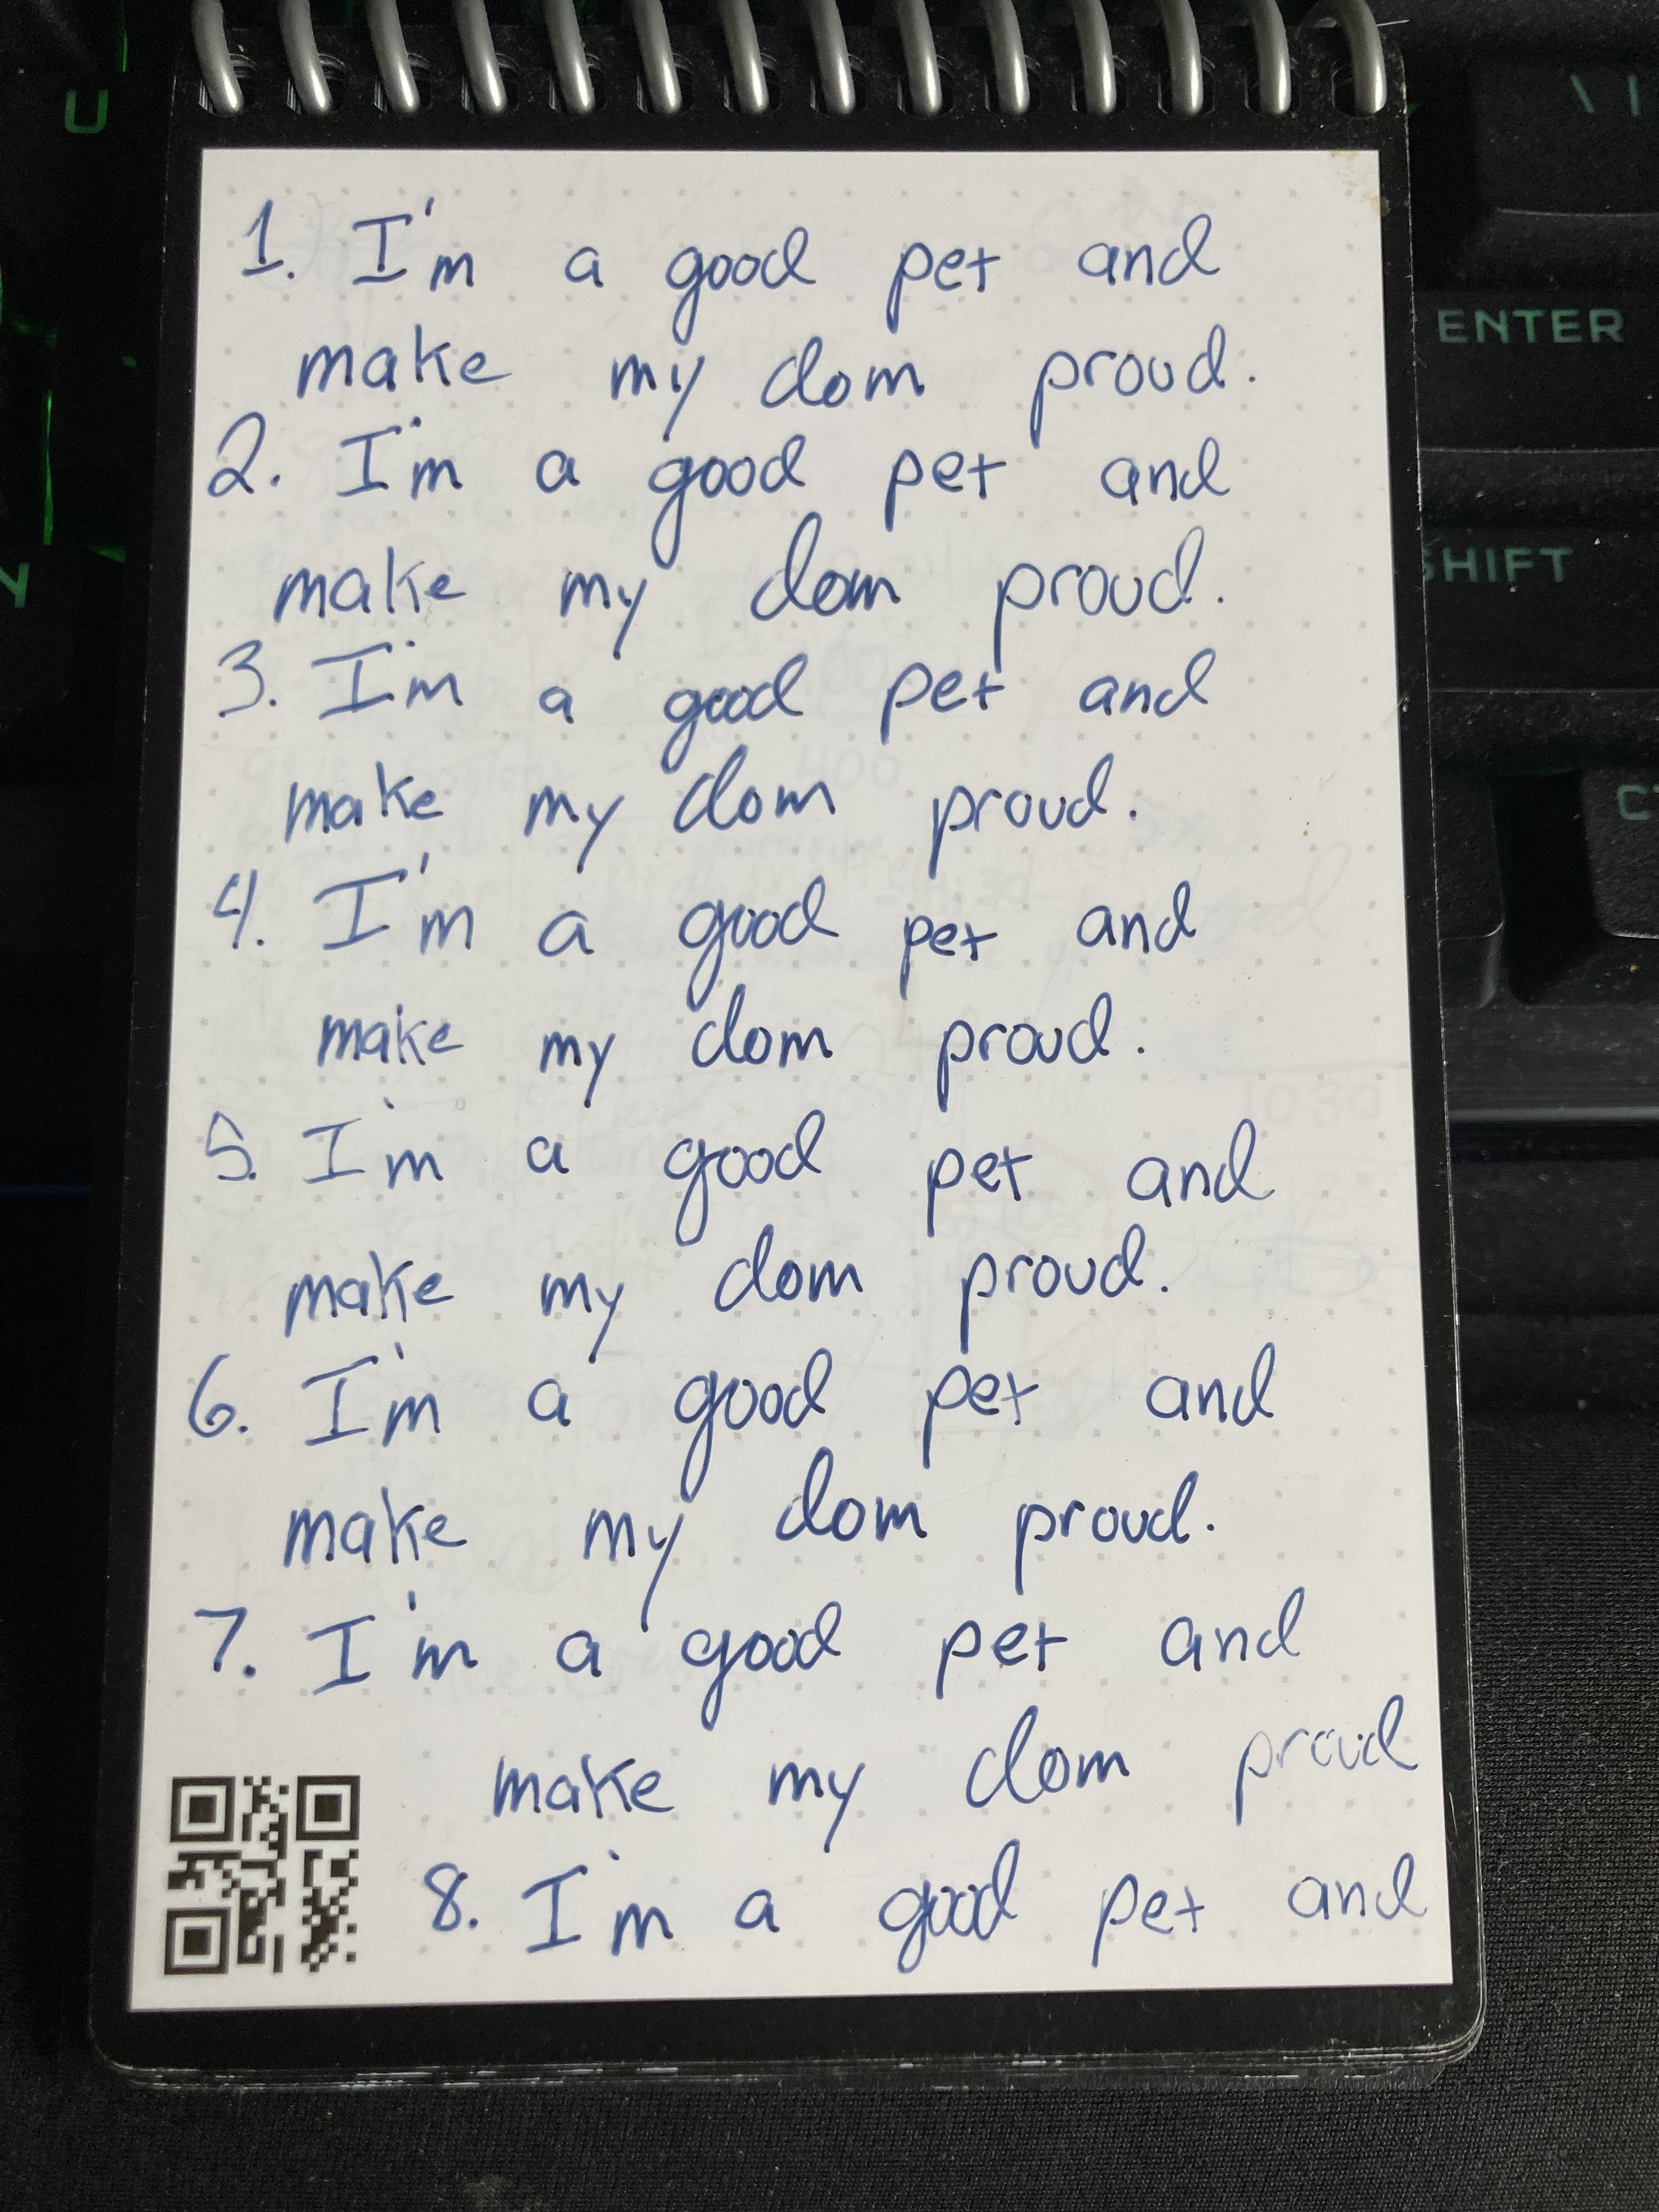 1. I'm a good pet and
make my dom proud.
2. I'm a good pet and
make my dom proud.
3. I'm a good pet and
make my dom proud.
4. I'm a good pet and
make my dom proud.
5. I'm a good pet and
make my dom proud.
6. I'm a good pet and
make my dom proud.
7. I'm a good pet and
make my dom proud
8. I'm a good pet and
U
\ |
ENTER
SHIFT